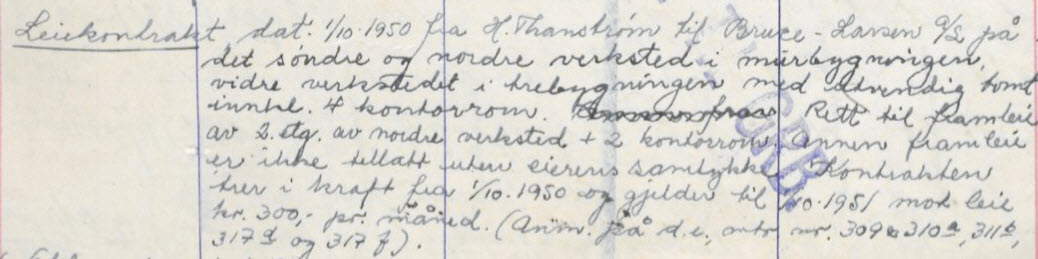 Leiekontrakt dat. 1/10.1950 fra H. Thanstrøm til Bruce-Larsen A/S på
det søndre og nordre verksted i murbygningen,
vidre verkstedet i trebygningen med utvendig tomt
innkl. 4 kontorrom. Rett til framleie
av 2. etg. av nordre verksted + 2 kontorrom. Annen framleie
er ikke tillatt uten eierens samtykke. Kontrakten
trer i kraft fra 1/10.1950 og gjelder til 1/10.1951 mot leie
kr. 300,- pr. måned. (Anm. på d.e., mtr. nr. 309a 310a, 311b,
317d og 317f).